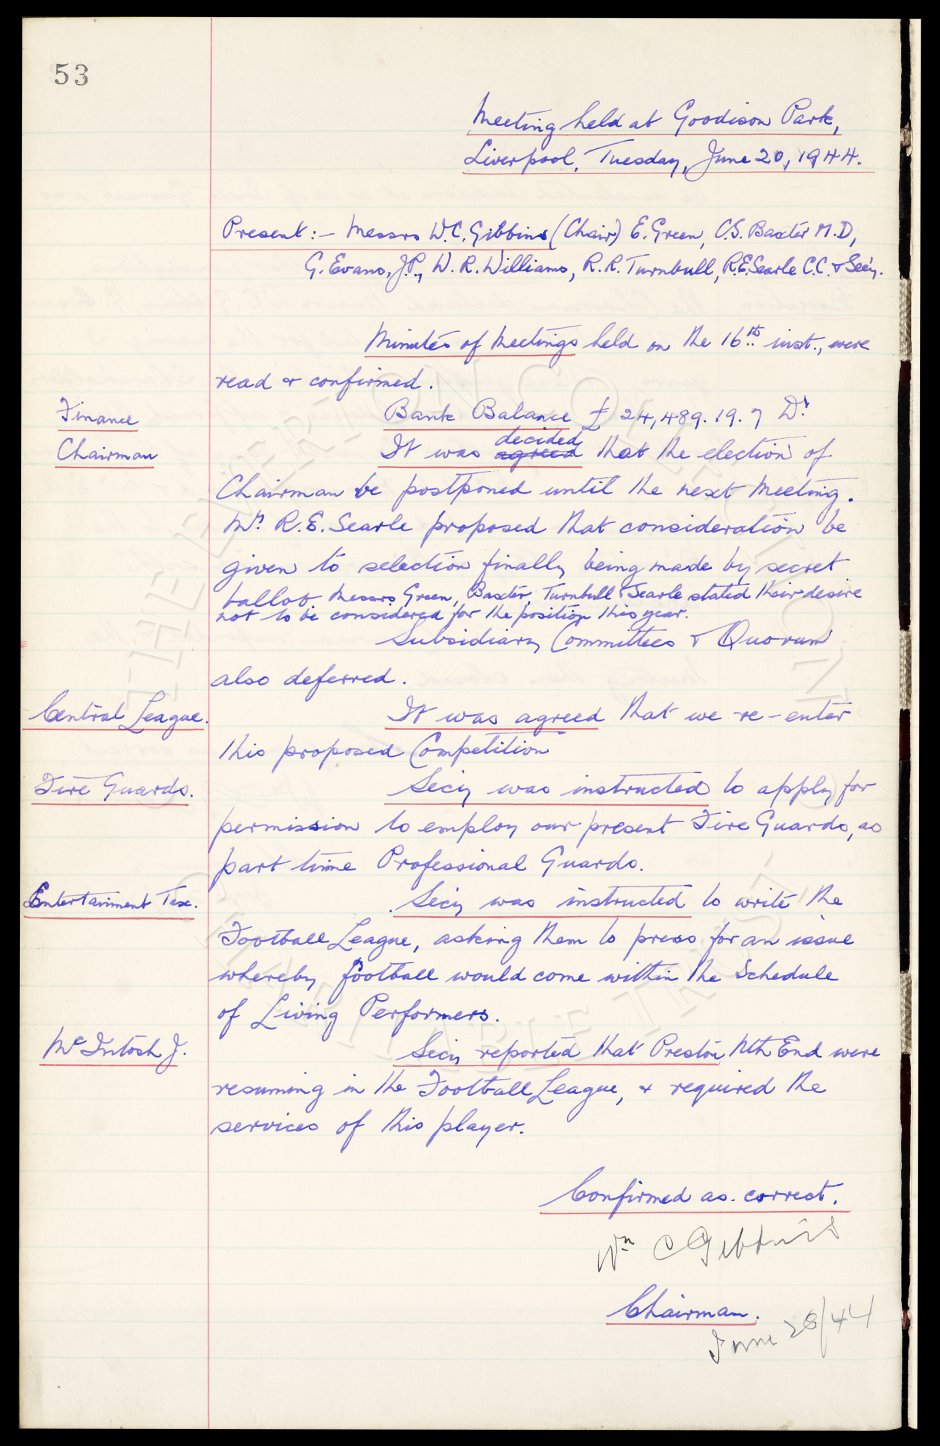 53
Meeting held at Goodison Park,
Liverpool, Tuesday, June 20, 1944.
Present:- Messrs W.C. Gibbins (Chair) E. Green, C.S. Baxter M.D,
G. Evans, J.P., W.R. Williams, R.R. Turnbull, R.E. Searle C.C. & Secy.
Minutes of Meetings held on the 16th inst., were
read & confirmed.
Finance Bank Balance £ 24,489.19.7 Dr
decided
Chairman It was agreed that the election of
Chairman be postponed until the next Meeting.
Mr. R.E. Searle proposed that consideration be
given to selection finally being made by secret
ballot Messrs Green, Baxter, Turnbull & Searle stated their desire
not to be considered for the position this year.
Subsidiary Committees & Quorum
also deferred.
Central League. It was agreed that we re-enter
this proposed Competition
Fire Guards. Secy was instructed to apply for
permission to employ our present Fire Guards, as
part time Professional Guards.
Entertainment Tax. Secy was instructed to write the
Football League, asking them to press for an issue
whereby football would come within the Schedule
of Living Performers.
McIntosh J. Secy reported that Preston Nth End were
resuming in the Football League, & required the
services of this player.
Confirmed as correct.
Wm C Gibbins
Chairman.
June 28/44
THE EVERTON COLLECTION
CHARITABLE TRUST